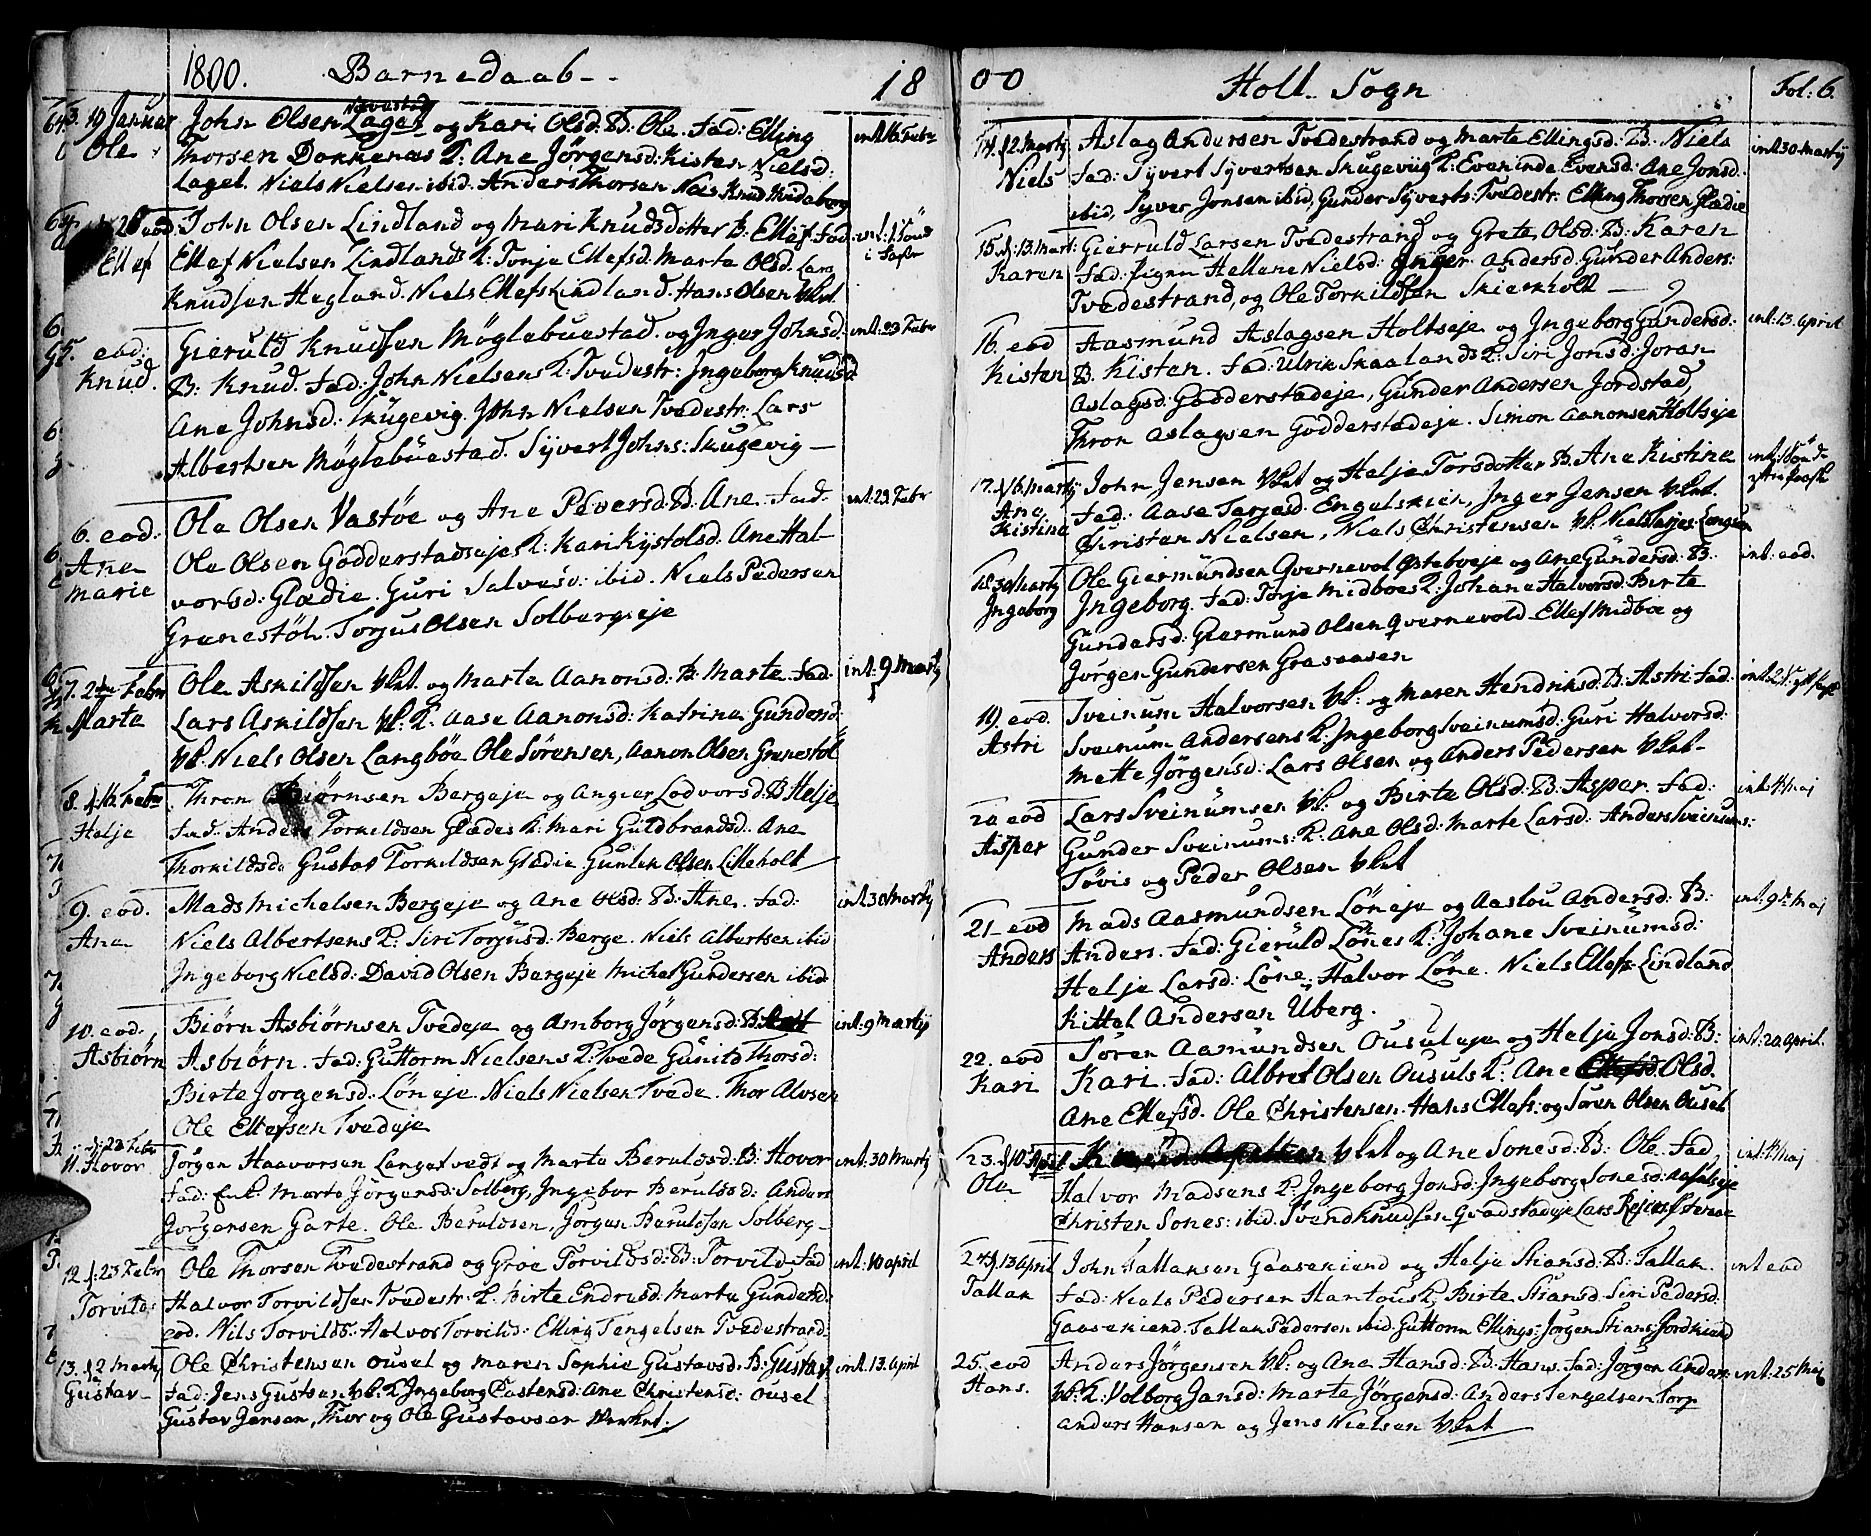 1800. Barnedaab - -
18
3. 19 Januar John Olsen Laget og Kari Olsd: B. Ole. Fad: Elling int. 16 Febr
Nævestad
Ole Thorsen Dokkenæs K: Ane Jörgensd: Kisten Nielsd:
Laget. Niels Nielsen ibid. Anders Thorsen Næs Knud Midaborg
John Olsen Lindland og Mari Knudsdotter B: Ellef. Fad:
Ellef Ellef Nielsen Lindlands K: Tonje Ellefsd: Marte Olsd. Lars
Knudsen Hegland. Niels Ellefs: Lindland. Hans Olsen Vkt.
5. eod: Gieruld Knudsen Möglebuestad og Inger Johnsd: int. 23 Febr
Knud. B: Knud. Fad: John Nielsens K: Tvedestr: Ingeborg Knudsd:
Ane Johnsd: Skugevig. John Nielsen Tvedestr: Lars
Albertsen Möglebuestad. Syvert Johns: Skugevig —
6. eod. Ole Olsen Vastöe og Ane Peversd: B. Ane. Fad. int. 23 Febr
Ane Ole Olsen Godderstadsejes K: Kari Kystolsd: Ane Hal-
Marie vorsd: Glædie. Guri Salvesd: ibid. Niels Pedersen
Grenestöl. Torjus Olsen Solbergseje
7. 2 Febr Ole Askildsen Vkt. og Marte Aanonsd: B: Marte. Fad. int: 9 Marty
Marte Lars Askildsen Vk: K: Aase Aanonsd: Katrine Gundersd:
Vk. Niels Olsen Langböe Ole Sörensen, Aanon Olsen Grenestöl
8. d. 16 Febr Thron Biörnsen Bergeje og Angier Lodvorsd: B. Helje
Helje Fad: Anders Torkildsen Glædes K: Mari Guldbrandsd: Ane
Thorkildsd: Gustav Torkildsen Glædie. Gunlek Olsen Lilleholt
9. eod. Mads Michelsen Bergeje og Ane Olsd: B: Ane. Fad: int. 30 Marty
Ane Niels Albertsens K: Siri Torjusd: Berge. Niels Albertsen ibid
Ingeborg Nielsd: David Olsen Bergeje Michel Gundersen ibid.
10. eod. Biörn Asbiörnsen Tvedeje og Amborg Jörgensd: B: int. 9 Martij
Asbiörn Asbiörn. Fad: Guttorm Nielsens K: Tvede Gunild Thorsd:
Birte Jörgensd: Löneje. Niels Nielsen Tvede. Thor Alvsen
Ole Ellefsen Tvedeje
11. d: 23 Febr Hovor Jörgen Haavorsen Langetvedt og Marte Beruldsd: B: Hovor int. 30 Marty
Fad: Marte Jörgensd: Solberg, Ingebor Beruldsd: Anders
Jörgensen Garte. Ole Beruldsen, Jörgen Beruldsen Solberg -
12 d: 23 Febr Ole Thorsen Tvedestrand og Groe Torvildsd: B: Torvild. Fad int. 10 April
Torvild: Halvor Torvildsen Tvedestr. K: Birte Endresd: Marte Gundersd:
eod. Nils Torvilds: Halvor Torvilds: Elling Tengelsen Tvedestrand.
13. d 2 Marty Ole Christensen Ousel og Maren Sophie Gustavsd: B: Gustav int. 13. April
Gustav- Fad: Jens Gustsen Vk: K Ingeborg Castensd: Ane Christensd: Ousel
Gustav Jensen, Thor og Ole Gustavsen Verket.
00 Holt Sogn Fol: 6.
14. d 2 Marty Aslag Andersen Tvedestrand og Marte Ellingsd: B. Niels int 30 Martij
Niels Fad: Syvert Syvertsen Skugeviig K: Even inde Evensd. Ane Jonsd.
ibid, Syver Jonsen ibid, Gunder Syverts: Tvedestr: Elling Thorsen Glædie
15. d. 13. Mart: Gieruld Larsen Tvedestrand og Grete Olsd: B: Karen
Karen Fad: Pigen Hellene Nielsd: Inger Andersd: Gunder Anders:
Tvedestrand, og Ole Torkildsen Skierkholt —
16. eod Aasmund Aslagsen Holtseje og Ingeborg Gundersd: int: 13 April
Kisten B: Kisten. Fad: Ulrik Skaalands K: Siri Jonsd: Joran
Aslagsd: Godderstadeje, Gunder Andersen Jordstad,
Thron Aslagsen Godderstadeje. Simon Aanonsen Holtseje
17. d 16. Marty John Jensen Vkt og Helje Torsdotter B: Ane Kistine
Ane Kistine Fad: Aase Tarjesd: Engelskien, Inger Jensen Vket.
Christen Nielsen, Niels Christensen Vk. Niels Tarjes: Langsen
18. 30 Marty Ole Giermundsen Qvernevol Östeboeje og Ane Gundersd: B: int. eod.
Ingeborg Ingeborg. Fad: Torje Midboes K: Johane Halvorsd: Birte
Gundersd: Giermund Olsen Qvernevold. Ellef Midboe og
Jörgen Gundersen Grasaasen
19. eod. Sveinum Halvorsen Vk: og Maren Hendriksd: B: Astri. Fad.
Astri Sveinum Andersens K: Ingeborg Sveinumsd: Guri Halvorsd:
Mette Jörgensd: Lars Olsen og Anders Pedersen Vket-
20 eod Lars Sveinumsen Vk: og Birte Olsd: B: Asper. Fad: int. 4 Maj
Asper Gunder Sveinums: K: Ane Olsd: Marte Larsd: Anders Sveinums:
Tövis og Peder Olsen Vket
21- eod Mads Aasmundsen Löneje og Aaslou Andersd: B: int. 9de Maj
Anders Anders. Fad: Gieruld Lönes K: Johane Sveinumsd:
Helje Larsd: Löne. Halvor Löne. Niels Ellefs: Lindland
Kittel Andersen Uberg.
22. eod Sören Aamundsen Ouseleje og Helje Jonsd: B: int. 20 April.
Kari Kari. Fad: Albret Olsen Ousuls K: Ane Ellefsd: Olsd.
Ane Ellefsd. Ole Christensen. Hans Ellefs: og Sören Olsen Ousel
23. d 10 April Vket og Ane Sonesd: B: Ole. Fad, int: 4 Maj
Ole Halvor Madsens K: Ingeborg Jonsd: Ingeborg Sonesd:
Christen Sones: ibid. Svend Knudsen
24 d 13 April John Tallaksen Gaaseklend og Helje Stiansd: B: Tallak. int eod
Tallak Fad: Niels Pedersen Hantous K: Birte Stiansd: Siri Pedersd:
Gaaseklend. Tallak Pedersen ibid. Guttorm Ellings: Jörgen Stians: Jordkiend
25. eod Anders Jörgensen Vk: og Ane Hansd: B: Hans. Fad: Jörgen Anders: int. 25 Maj
Hans. Vk: K: Volborg Jansd: Marte Jörgensd: Anders Tengelsen Torp
Anders Hansen og Jens Nielsen Vket